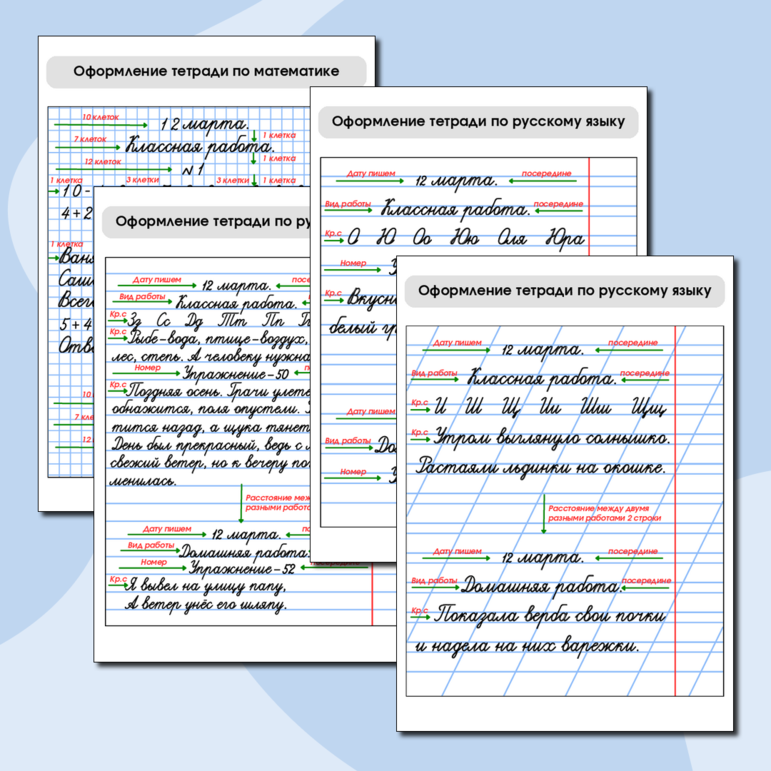 Оформление тетради по математике
10 клеток
12 марта.
1 клетка
7 клеток
Классная работа.
1 клетка
12 клеток
N 1
1 клетка 3 клетки 3 клетки 1 клетка
10-
4+2
1 клетка
Ваня
Саш
Всег
5+4
Отв
10
7 кле
12
Оформление тетради по ру
Дату пишем 12 марта. посе
Вид работы Классная работа.
Кр.с Зз Сс Дд Тт Пп
Кр.с Рыбе-вода, птице-воздух,
лес, степь. А человеку нужна
Номер Упражнение-50
Кр.с Поздняя осень. Грачи улете
обнажится, поля опустели.
тится назад, а щука тянет
День был прекрасный, ведь с
свежий ветер, но к вечеру по
менилась.
Расстояние меж
разными работа
Дату пишем 12 марта. по
Вид работы Домашняя работа.
Номер Упражнение-52
Кр.с Я вывел на улицу папу,
А ветер унёс его шляпу.
Оформление тетради по русскому языку
Дату пишем 12 марта. посередине
Вид работы Классная работа. посередине
Кр.с О Ю Оо Юю Оля Юра
Номер
Кр.с Вкусн
белый гр
Дату пишем
Вид работы До
Номер
Оформление тетради по русскому языку
Дату пишем 12 марта. посередине
Вид работы Классная работа. посередине
Кр.с И Ш Щ Ии Шш Щщ
Кр.с Утром выглянуло солнышко.
Растаяли льдинки на окошке.
Расстояние между двумя
разными работами 2 строки
Дату пишем 12 марта. посередине
Вид работы Домашняя работа. посередине
Кр.с Показала верба свои почки
и надела на них варежки.